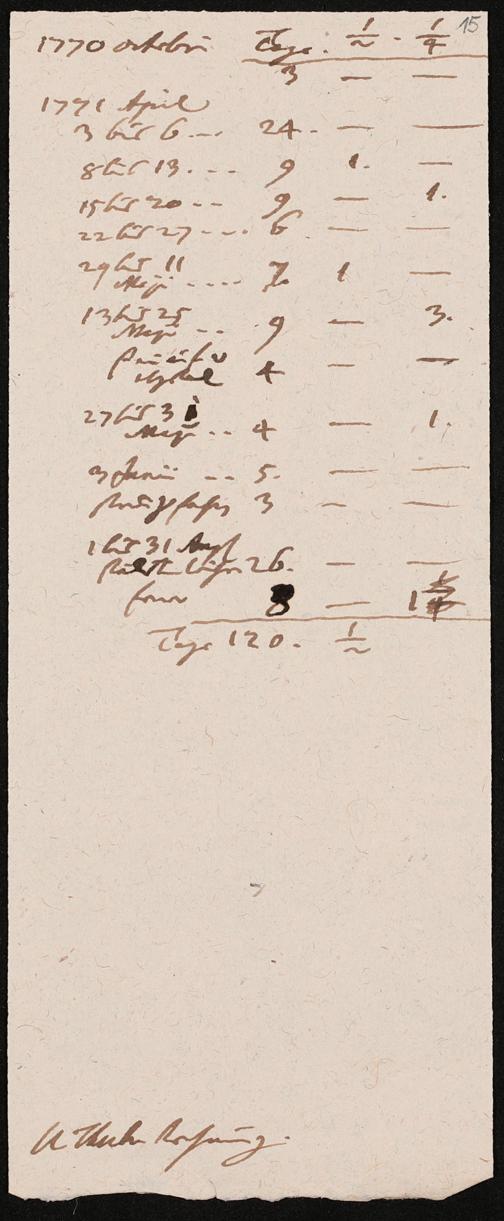 15
1770 octobri Tage. 1/2 . 1/4
3 — —
1771 April
3 bis 6 --- 24. — —
8 bis 13. --- 9 1. —
15 bis 20 -- 9 — 1.
22 bis 27 ---. 6. — —
29 bis 11
Maji ---- 7. 1 —
13 bis 25
Maji -- 9 — 3.
4 — —
27 bis 31
Maji -- 4 — 1.
3 Junii -- 5. — —
3 — —
1 bis 31 Augst
26. — —
8 — 1
Tage 120. 1/2